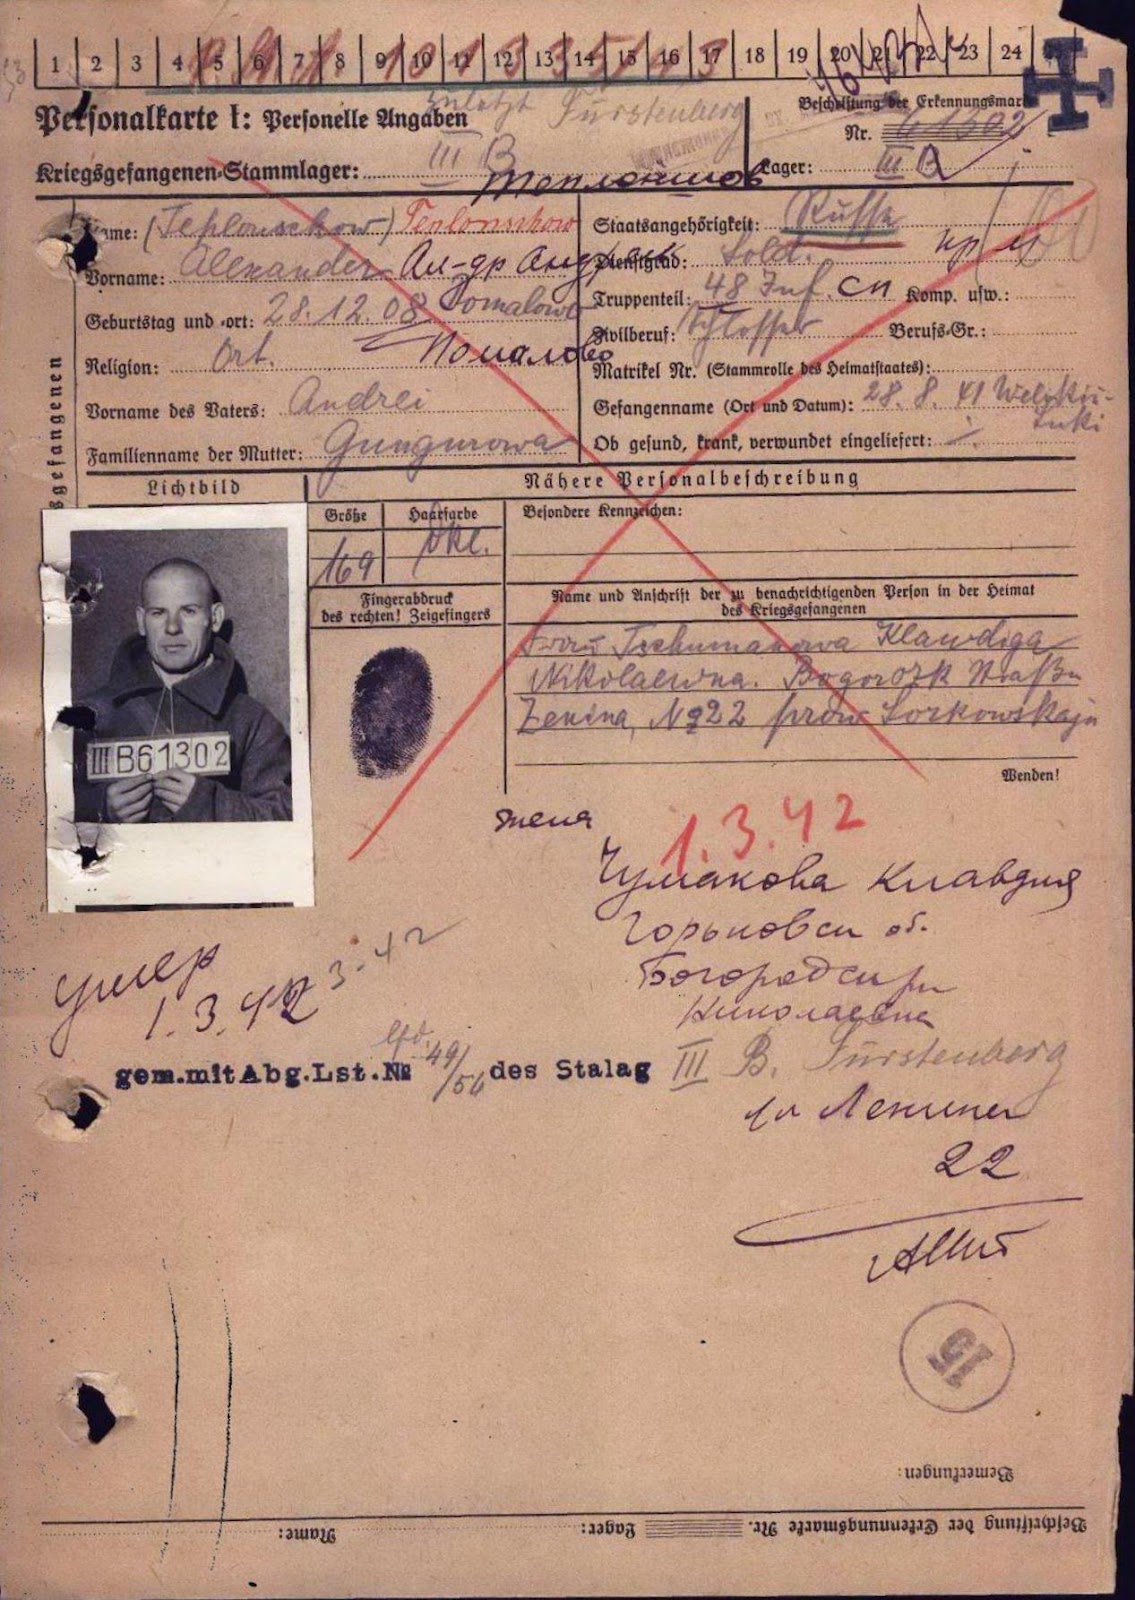 1 2 3 4 5 6 7 8 9 10 11 12 13 14 15 16 17 18 19 20 21 22 23 24
zuletzt Fürstenberg
Personalkarte I: Personelle Angaben
Beschriftung der Erkennungsmarke
Nr. 61302
Kriegsgefangenen-Stammlager: III B
Lager: III B
Name: (Teplonschow) Teplonschow
Staatsangehörigkeit: Russe
Vorname: Alexander Ал-др Андр
Dienstgrad: Sold.
Truppenteil: 48 Inf. СП Komp. usw.:
Geburtstag und -ort: 28.12.08 Pomalowo
Помалово
Zivilberuf: Schlosser Berufs-Gr.:
Religion: Ort.
Matrikel Nr. (Stammrolle des Heimatstaates):
Vorname des Vaters: Andrei
Gefangenname (Ort und Datum): 28.8.41 Welikii-
Luki
Familienname der Mutter: Gungurowa
Ob gesund, krank, verwundet eingeliefert: ·/.
gefangenen
Lichtbild
Nähere Personalbeschreibung
Größe
Haarfarbe
Besondere Kennzeichen:
169
dkl.
Fingerabdruck
des rechten! Zeigefingers
Name und Anschrift der zu benachrichtigenden Person in der Heimat
des Kriegsgefangenen
Frau Tschumakowa Klawdiga
Nikolaewna. Bogorozk Straße
Lenina, № 22 prow Gorkowskaja
III B 61302
Wenden!
жена
1.3.42
Чумакова Клавдия
Горьковск об.
Богородский рн
Николаевна
умер
1.3.42
3-42
lfd.
gem.mit Abg.Lst.№ 49/54 des Stalag III B. Fürstenberg
ул Ленина
22
15
Bemerkungen:
Beschriftung der Erkennungsmarke Nr. Lager: Name: